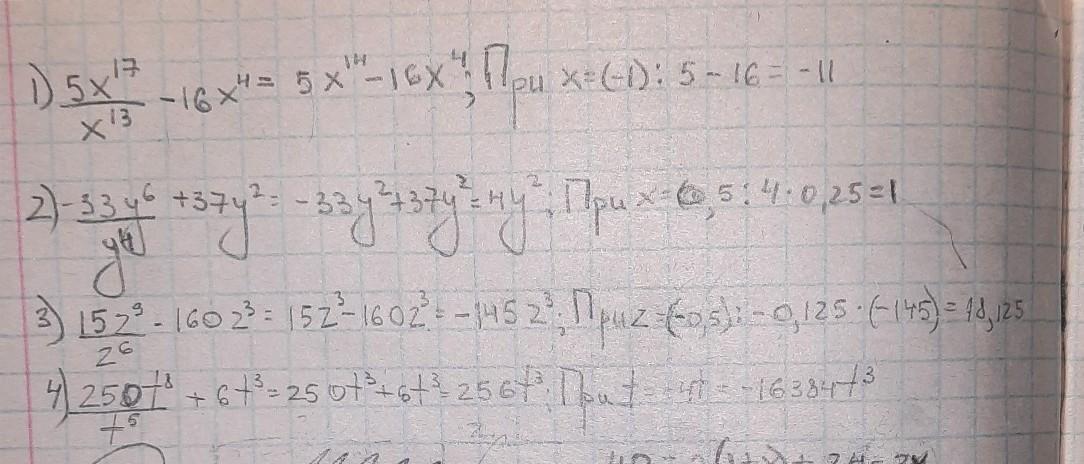 1) 5x¹⁷/x¹³ - 16x⁴ = 5x¹⁴ - 16x⁴; При x=(-1): 5 - 16 = -11
2) -33y⁶/y⁴ + 37y² = -33y² + 37y² = 4y²; При x=0,5: 4·0,25=1
3) 15z⁹/z⁶ - 160z³ = 15z³ - 160z³ = -145z³; При z=(-0,5): -0,125·(-145) = 18,125
4) 250t⁸/t⁵ + 6t³ = 250t³ + 6t³ = 256t³; При t = -4 = -16384t³